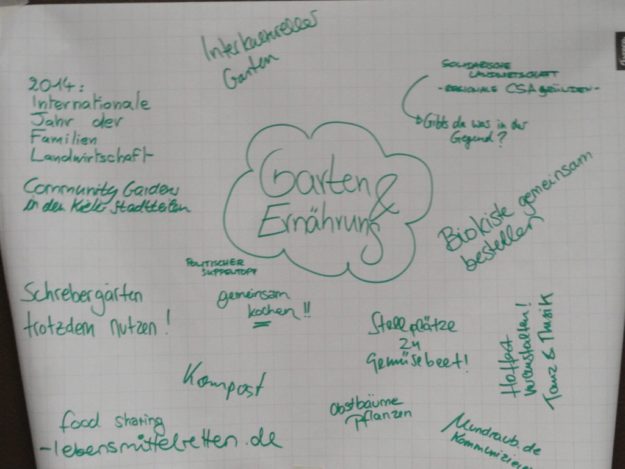 Interkultureller
Garten
2014:
Internationale
Jahr der
Familien
Landwirtschaft
Community Garden
in den Kieler Stadtteilen
SOLIDARISCHE
LANDWIRTSCHAFT
- REGIONALE CSA GRÜNDEN -
Gibts da was in der
Gegend?
Garten &
Ernährung
Biokiste gemeinsam
bestellen
POLITISCHER
SUPPENTOPF
gemeinsam
kochen!!
Schrebergärten
trotzdem nutzen!
Stellplätze
zu
Gemüsebeet!
Hoffest
veranstalten!
Tanz & Musik
Kompost
Obstbäume
pflanzen
Mundraub.de
food sharing
-lebensmittelretten.de